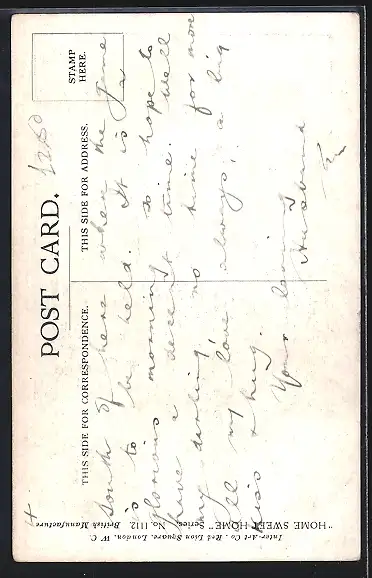 4.
POST CARD.
THIS SIDE FOR CORRESPONDENCE.
THIS SIDE FOR ADDRESS.
STAMP
HERE.
south of here when the game
is to be held. It is a
glorious morning so hope to
have a decent time. Well
my darling no time for more
all my love always, a big
kiss & hug.
Your loving
Husband
Inter-Art Co., Red Lion Square, London, W.C.
"HOME SWEET HOME" Series, No. 1112. British Manufacture